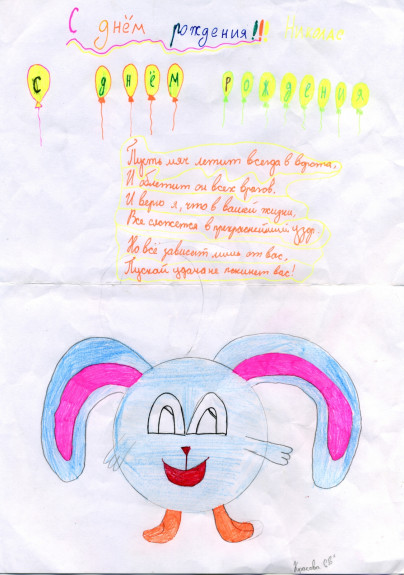 С днём рождения!!!
С днём рождения
Пусть мяч летит всегда в ворота,
И облетит он всех врагов.
И верю я, что в вашей жизни,
Все сложется в прекраснейший узор.
Но всё зависит лишь от вас,
Пускай удача не покинет вас!